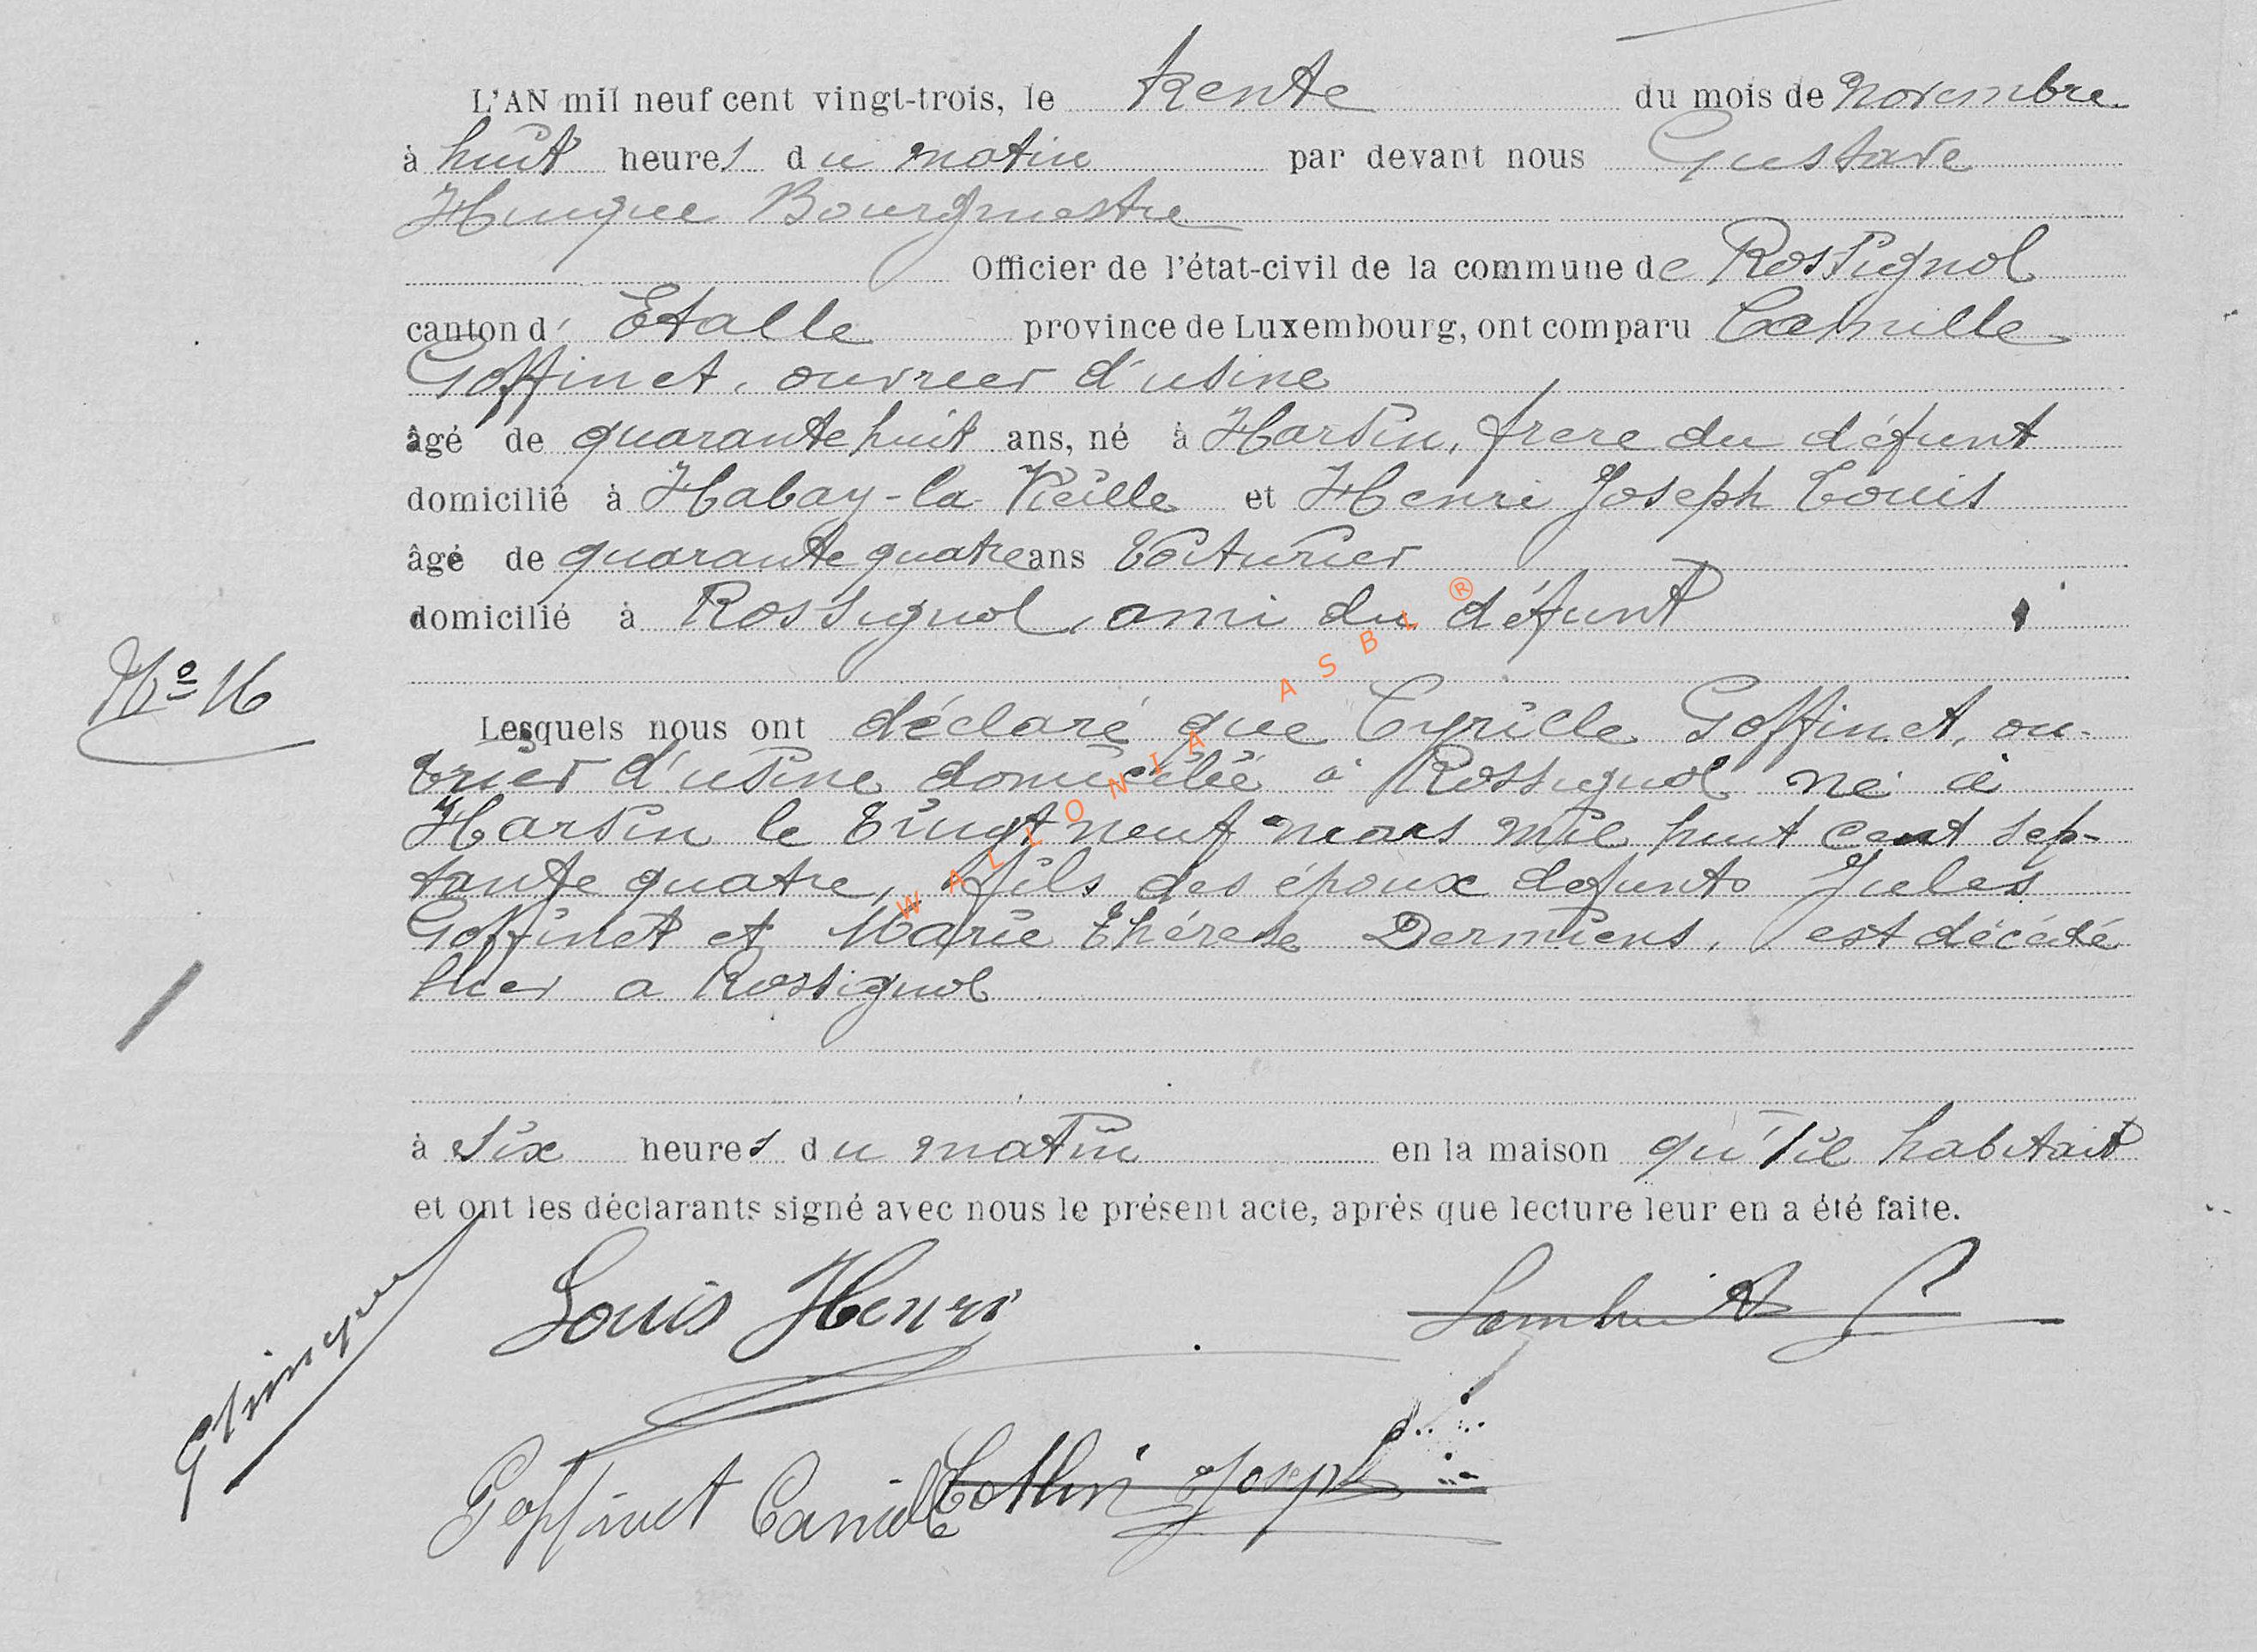 L'AN mil neuf cent vingt-trois, le trente du mois de Novembre
à huit heures du matin par devant nous Gustave
Hinque Bourgmestre
Officier de l'état-civil de la commune de Rossignol
canton d' Etalle province de Luxembourg, ont comparu Camille
Goffinet, ouvrier d'usine
âgé de quarante huit ans, né à Harsin, frere du défunt
domicilié à Habay-la-Vieille et Henri Joseph Louis
âgé de quarante quatre ans Voiturier
domicilié à Rossignol, ami du défunt
No 16
Lesquels nous ont déclaré que Cyrille Goffinet, ou-
vrier d'usine domicilié à Rossignol né à
Harsin le vingt neuf mars mil huit cent sep-
tante quatre, fils des époux defunts Jules
Goffinet et Marie Thérese Dermiens, est décédé
hier a Rossignol
à six heures du matin en la maison qu'il habitait
et ont les déclarants signé avec nous le présent acte, après que lecture leur en a été faite.
Louis Henri
GHinque
Goffinet Camille Collin Joseph
WALLONIA ASBL ®